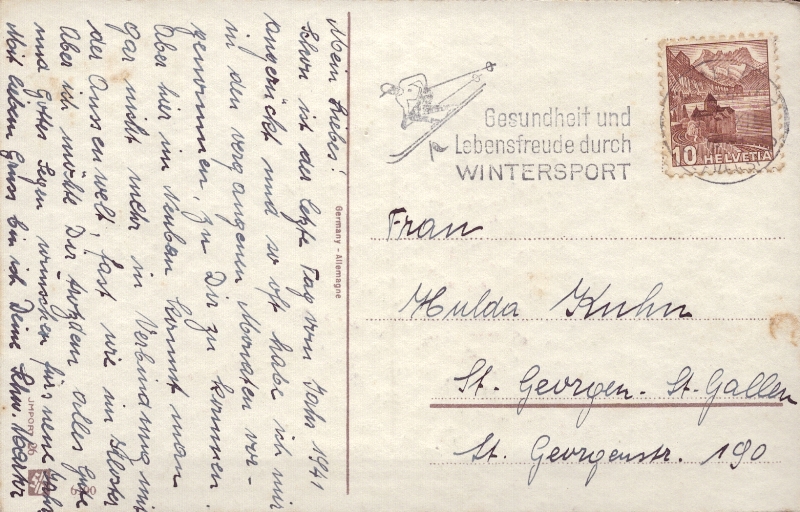 Mein Liebes!
Schon ist der letzte Tag vom Jahr 1941
angerückt und so oft habe ich mir
in den vergangenen Monaten vor-
genommen, zu Dir zu kommen.
Aber hier im Neubau kommt man
gar nicht mehr in Verbindung mit
der Aussenwelt, fast wie im Kloster
Aber ich möchte Dir trotzdem alles Gute
und Gottes Segen wünschen für's neue Jahr
Mit lieben Gruss bin ich Deine Schw. Martha
Germany - Allemagne
IMPORT
Gesundheit und
Lebensfreude durch
WINTERSPORT
10 HELVETIA
Frau
Hulda Kuhn
St. Georgen - St. Gallen
St. Georgenstr. 190